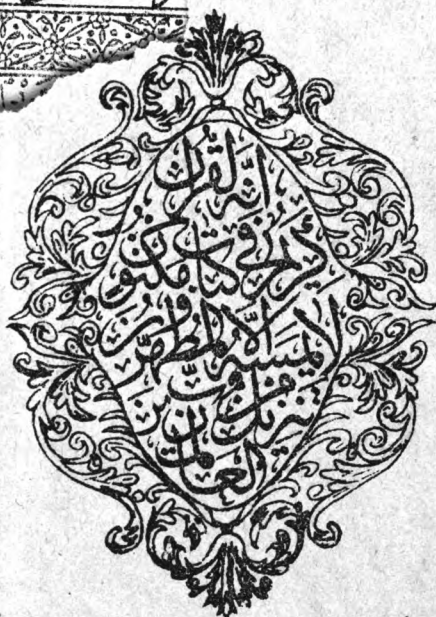 إنه لقرآن
كريم في كتاب مكنون
لا يمسه إلا المطهرون
تنزيل من رب
العالمين